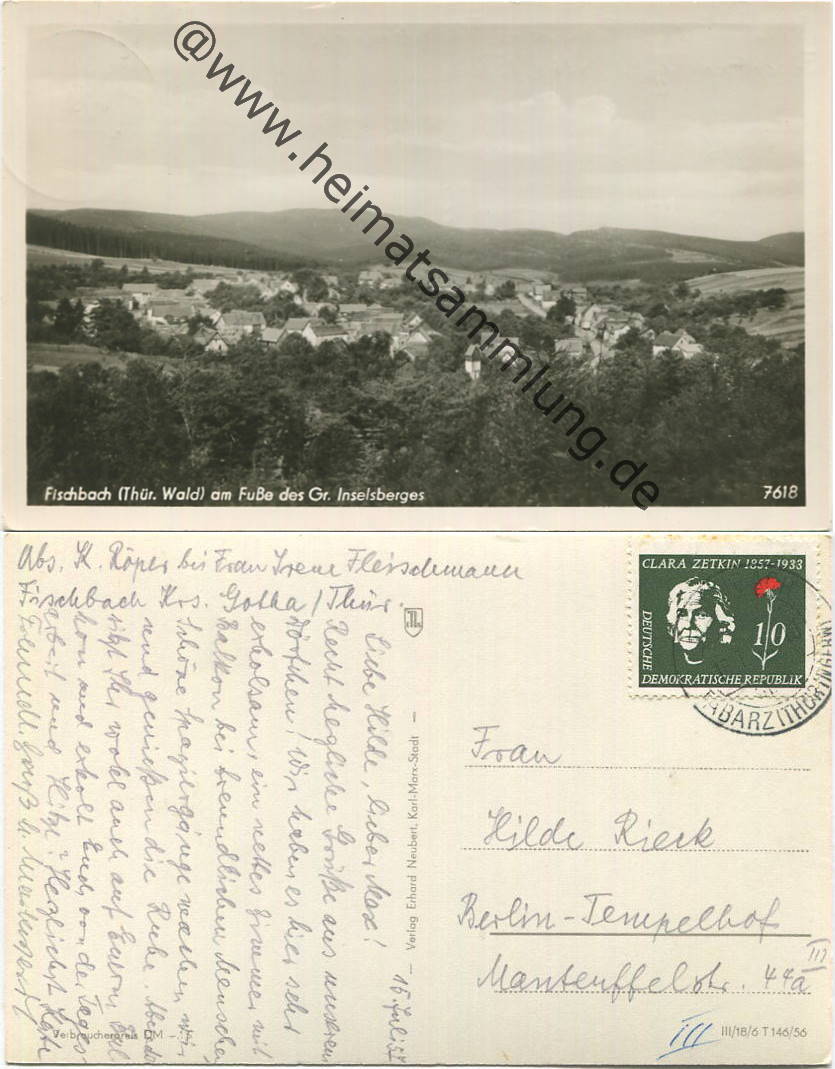 @www.heimatsammlung.de
Fischbach (Thür. Wald) am Fuße des Gr. Inselsberges
7618
Abs. K. Röper bei Frau Irene Fleischmann
Fischbach Krs. Gotha / Thür.
16 Juli 57
Liebe Hilde, lieber Max!
Recht herzliche Grüße aus unserem
Dörfchen! Wir haben es hier sehr
erholsam, ein nettes Zimmer mit
Balkon bei freundlichen Menschen
Schöne Spaziergänge machen wir
und genießen die Ruhe.
sitzt Ihr wohl auch auf Eurem
und erholt Euch von der Tages
arbeit und Hitze? Herzlichst Käte
Freundl. Gruß
Verbraucherpreis DM
Verlag Erhard Neubert, Karl-Marx-Stadt
CLARA ZETKIN 1857-1933
10
DEUTSCHE
DEMOKRATISCHE REPUBLIK
TABARZ (THÜR
Frau
Hilde Rieck
Berlin-Tempelhof
Manteuffelstr. 44a III
III
III/18/6 T 146/56